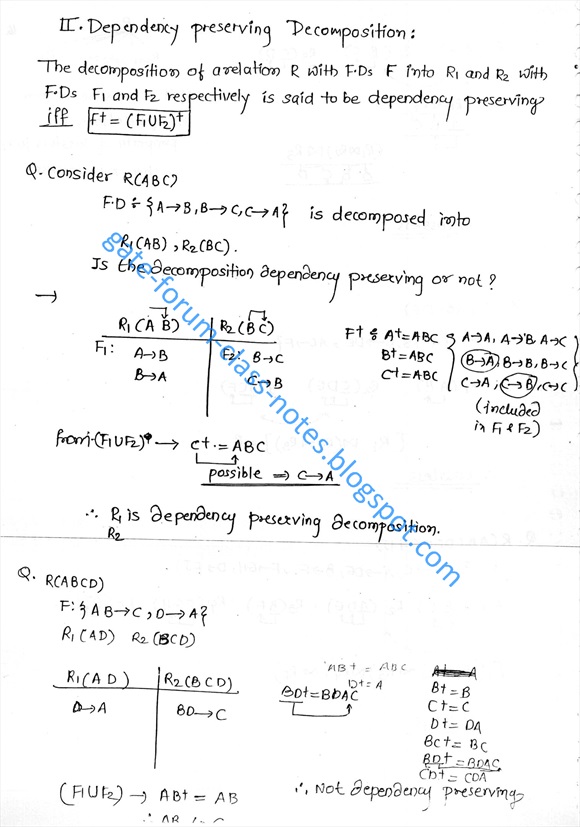 II. Dependency preserving Decomposition:
The decomposition of a relation R with F.Ds F into R1 and R2 with
F.Ds F1 and F2 respectively is said to be dependency preserving
iff F+ = (F1UF2)+
Q. Consider R(ABC)
F.D = {A→B, B→C, C→A} is decomposed into
R1(AB), R2(BC).
Is the decomposition dependency preserving or not?
→
R1(A B) R2(B C)
F1: A→B F2: B→C
B→A C→B
F+ { A+=ABC { A→A, A→B, A→C }
B+=ABC B→A, B→B, B→C
C+=ABC C→A, C→B, C→C
(included
in F1 & F2)
From (F1UF2)+ → C+ = ABC
possible ⇒ C→A
∴ R1 is dependency preserving decomposition.
R2
gate-forum-class-notes.blogspot.com
Q. R(ABCD)
F: {AB→C, D→A}
R1(AD) R2(BCD)
R1(AD) R2(BCD)
D→A BD→C
AB+ = ABC
D+=A
BD+=BDAC
B+=B
C+=C
D+=DA
BC+=BC
BD+=BDAC
CD+=CDA
(F1UF2) → AB+ = AB
∴ Not dependency preserving